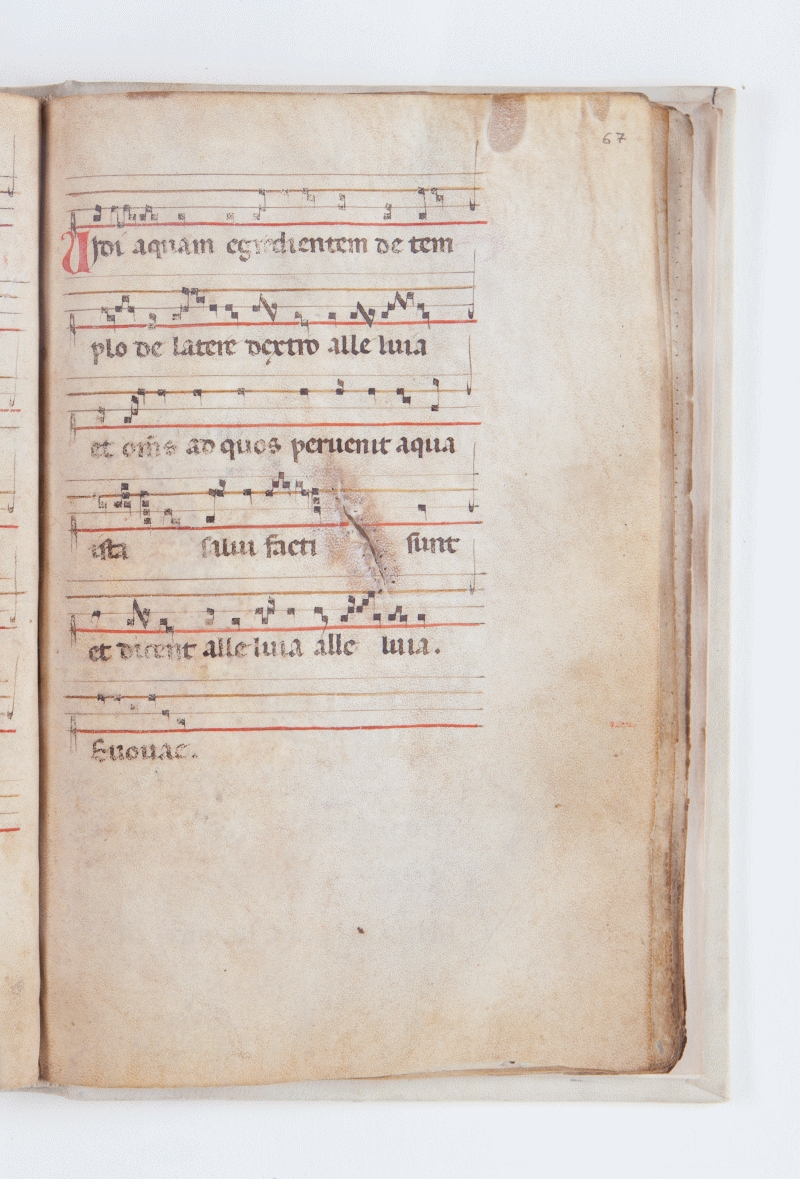 67
Vidi aquam egredientem de tem
plo de latere dextro alle luia
et om̄s ad quos peruenit aqua
ista salui facti sunt
et dicent alle luia alle luia.
Euouae.